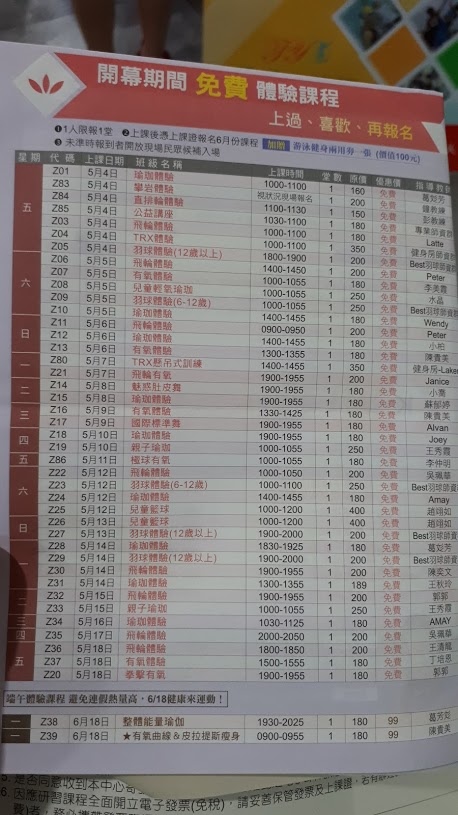 開幕期間 免費 體驗課程
上過、喜歡、再報名
❶1人限報1堂 ❷上課後憑上課證報名6月份課程
❸未準時報到者開放現場民眾候補入場 加贈 游泳健身兩用券一張 (價值100元)
星期 代碼 上課日期 班級名稱 上課時間 堂數 原價 優惠價 指導教
Z01 5月4日 瑜珈體驗 1000-1100 1 160 免費
Z83 5月4日 攀岩體驗 視狀況現場報名 1 200 免費
Z84 5月4日 直排輪體驗 1100-1130 1 150 免費
Z85 5月4日 公益講座 1030-1100 1 180 免費
Z03 5月4日 飛輪體驗 1000-1100 1 180 免費
Z04 5月4日 TRX體驗 1000-1100 1 350 免費 Latte
五 Z05 5月4日 羽球體驗(12歲以上) 1800-1900 1 200 免費
Z06 5月5日 飛輪體驗 1400-1450 1 200 免費 Best羽球師資群
Z07 5月5日 有氧體驗 1000-1055 1 180 免費 Peter
六 Z08 5月5日 兒童輕氧瑜珈 1000-1055 1 250 免費 李美霞
Z09 5月5日 羽球體驗(6-12歲) 1000-1055 1 250 免費 水晶
Z10 5月5日 瑜珈體驗 1400-1455 1 180 免費 Best羽球師資群
Z11 5月6日 飛輪體驗 0900-0950 1 200 免費 Wendy
日 Z12 5月6日 瑜珈體驗 1400-1455 1 180 免費 Peter
Z13 5月6日 有氧體驗 1300-1355 1 180 免費 小柏
一 Z80 5月7日 TRX懸吊式訓練 1400-1455 1 350 免費 陳貴美
Z21 5月7日 飛輪有氧 1900-1955 1 200 免費 健身房-Laker
二 Z14 5月8日 魅惑肚皮舞 1900-1955 1 180 免費 Janice
Z15 5月8日 瑜珈體驗 1900-1955 1 180 免費 小喬
三 Z16 5月9日 有氧體驗 1330-1425 1 180 免費 蘇郁婷
Z17 5月9日 國際標準舞 1900-1955 1 180 免費 陳貴美
四 Z18 5月10日 瑜珈體驗 1900-1955 1 180 免費 Alvan
Z19 5月10日 親子瑜珈 1000-1055 1 250 免費 Joey
五 Z86 5月11日 極球有氧 1000-1055 1 180 免費 王秀霞
Z22 5月12日 飛輪體驗 1000-1050 1 200 免費 李仲明
六 Z23 5月12日 羽球體驗(6-12歲) 1000-1100 1 250 免費 吳珮華
Z24 5月12日 瑜珈體驗 1400-1455 1 180 免費 Best羽球師資
Z25 5月12日 兒童籃球 1000-1200 1 400 免費 Amay
日 Z26 5月13日 兒童籃球 1000-1200 1 400 免費 趙翊如
Z27 5月13日 羽球體驗(12歲以上) 1900-2000 1 200 免費 趙翊如
Z28 5月14日 瑜珈體驗 1830-1925 1 180 免費 Best羽球師資
Z29 5月14日 羽球體驗(12歲以上) 1900-2000 1 200 免費
一 Z30 5月14日 飛輪體驗 1900-1955 1 200 免費 Best羽球師資
Z31 5月14日 瑜珈體驗 1300-1355 1 189 免費 陳奕文
二 Z32 5月15日 飛輪體驗 1900-1955 1 200 免費 王秋玲
Z33 5月15日 親子瑜珈 1000-1055 1 250 免費 郭郭
三 Z34 5月16日 瑜珈體驗 1030-1125 1 180 免費 王秀霞
四 Z35 5月17日 飛輪體驗 2000-2050 1 200 免費 AMAY
Z36 5月18日 飛輪體驗 1800-1850 1 200 免費 吳珮華
五 Z37 5月18日 有氧體驗 1500-1555 1 180 免費
Z20 5月18日 拳擊有氧 1900-1955 1 180 免費 郭郭
端午體驗課程 避免連假熱量高，6/18健康來運動！
一 Z38 6月18日 整體能量瑜伽 1930-2025 1 180 99
一 Z39 6月18日 ★有氧曲線＆皮拉提斯瘦身 0900-0955 1 180 99 陳貴美
5. 是否同意收到本中心
6. 因應研習課程全面開立電子發票(免稅)，請妥善保管發票及上課證，若有